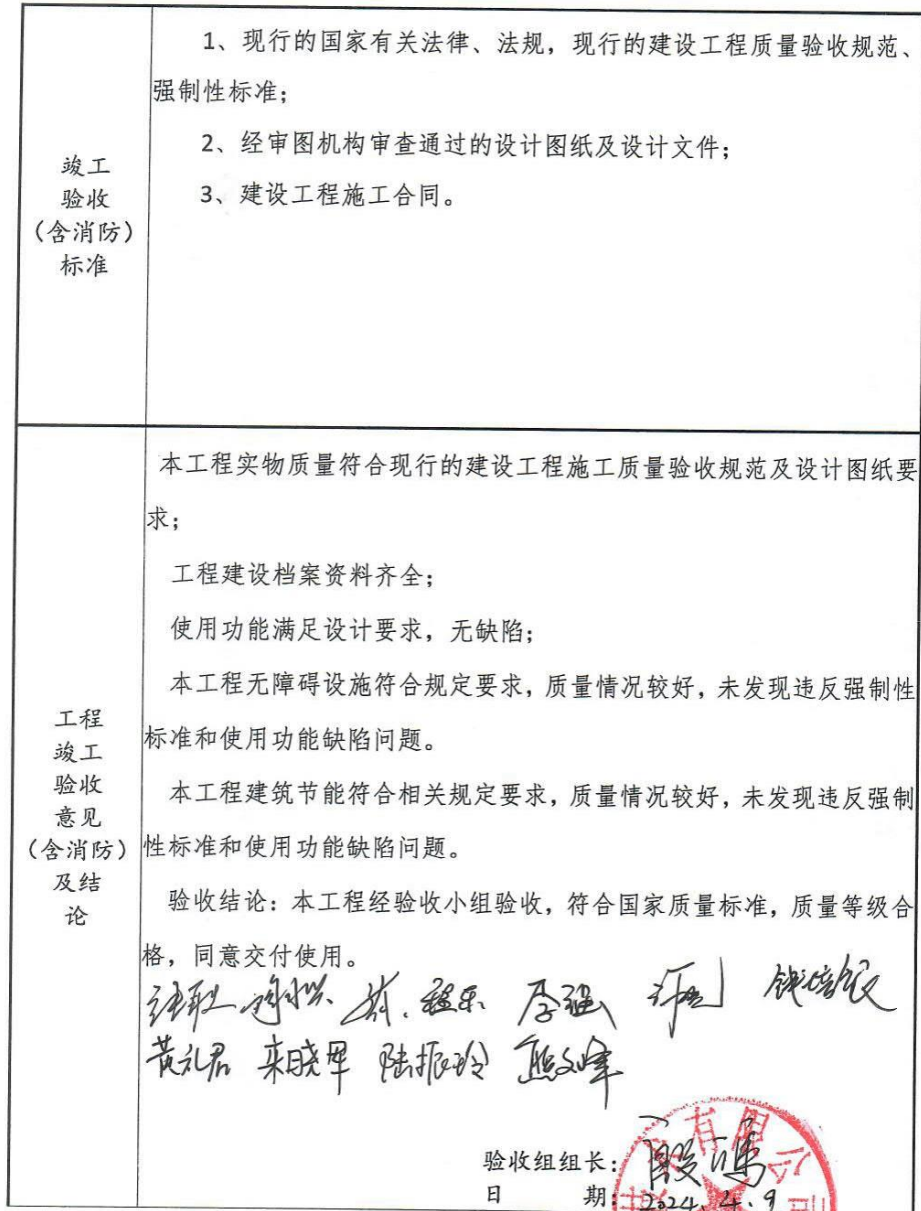 竣工
验收
（含消防）
标准
1、现行的国家有关法律、法规，现行的建设工程质量验收规范、
强制性标准；
2、经审图机构审查通过的设计图纸及设计文件；
3、建设工程施工合同。
工程
竣工
验收
意见
（含消防）
及结
论
本工程实物质量符合现行的建设工程施工质量验收规范及设计图纸要
求；
工程建设档案资料齐全；
使用功能满足设计要求，无缺陷；
本工程无障碍设施符合规定要求，质量情况较好，未发现违反强制性
标准和使用功能缺陷问题。
本工程建筑节能符合相关规定要求，质量情况较好，未发现违反强制
性标准和使用功能缺陷问题。
验收结论：本工程经验收小组验收，符合国家质量标准，质量等级合
格，同意交付使用。
李强
黄礼君 陆振玲 熊文峰
验收组组长：
日 期：2024.4.9
有限公司